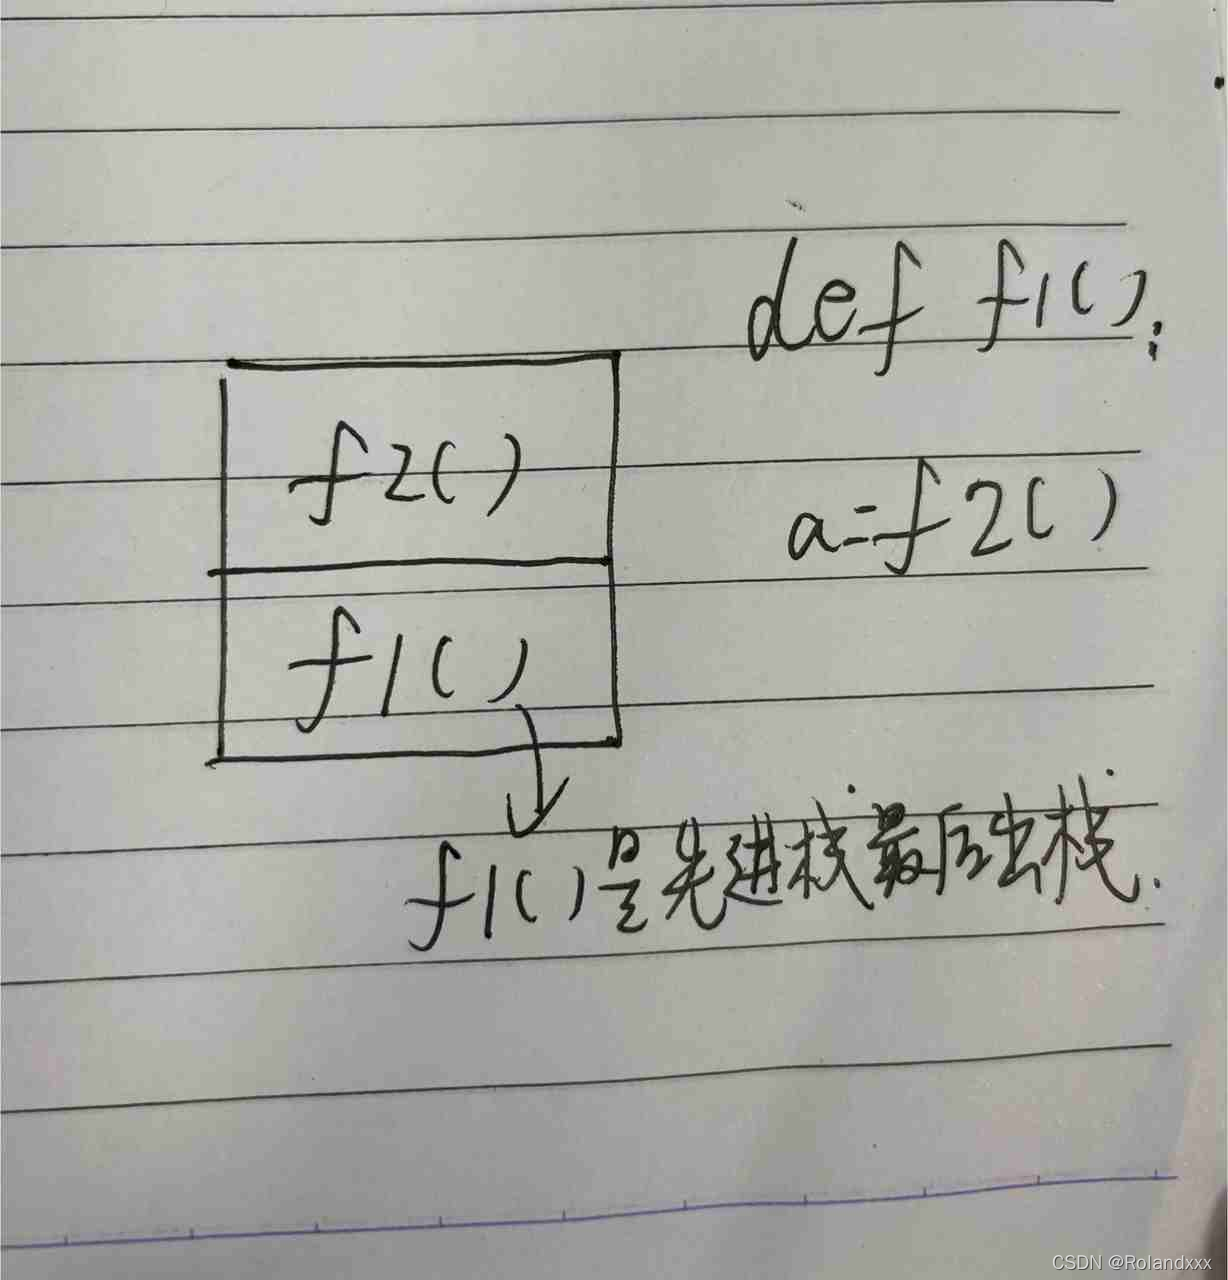 def f1():
f2()
a=f2()
f1()
f1()是先进栈最后出栈.
CSDN @Rolandxxx